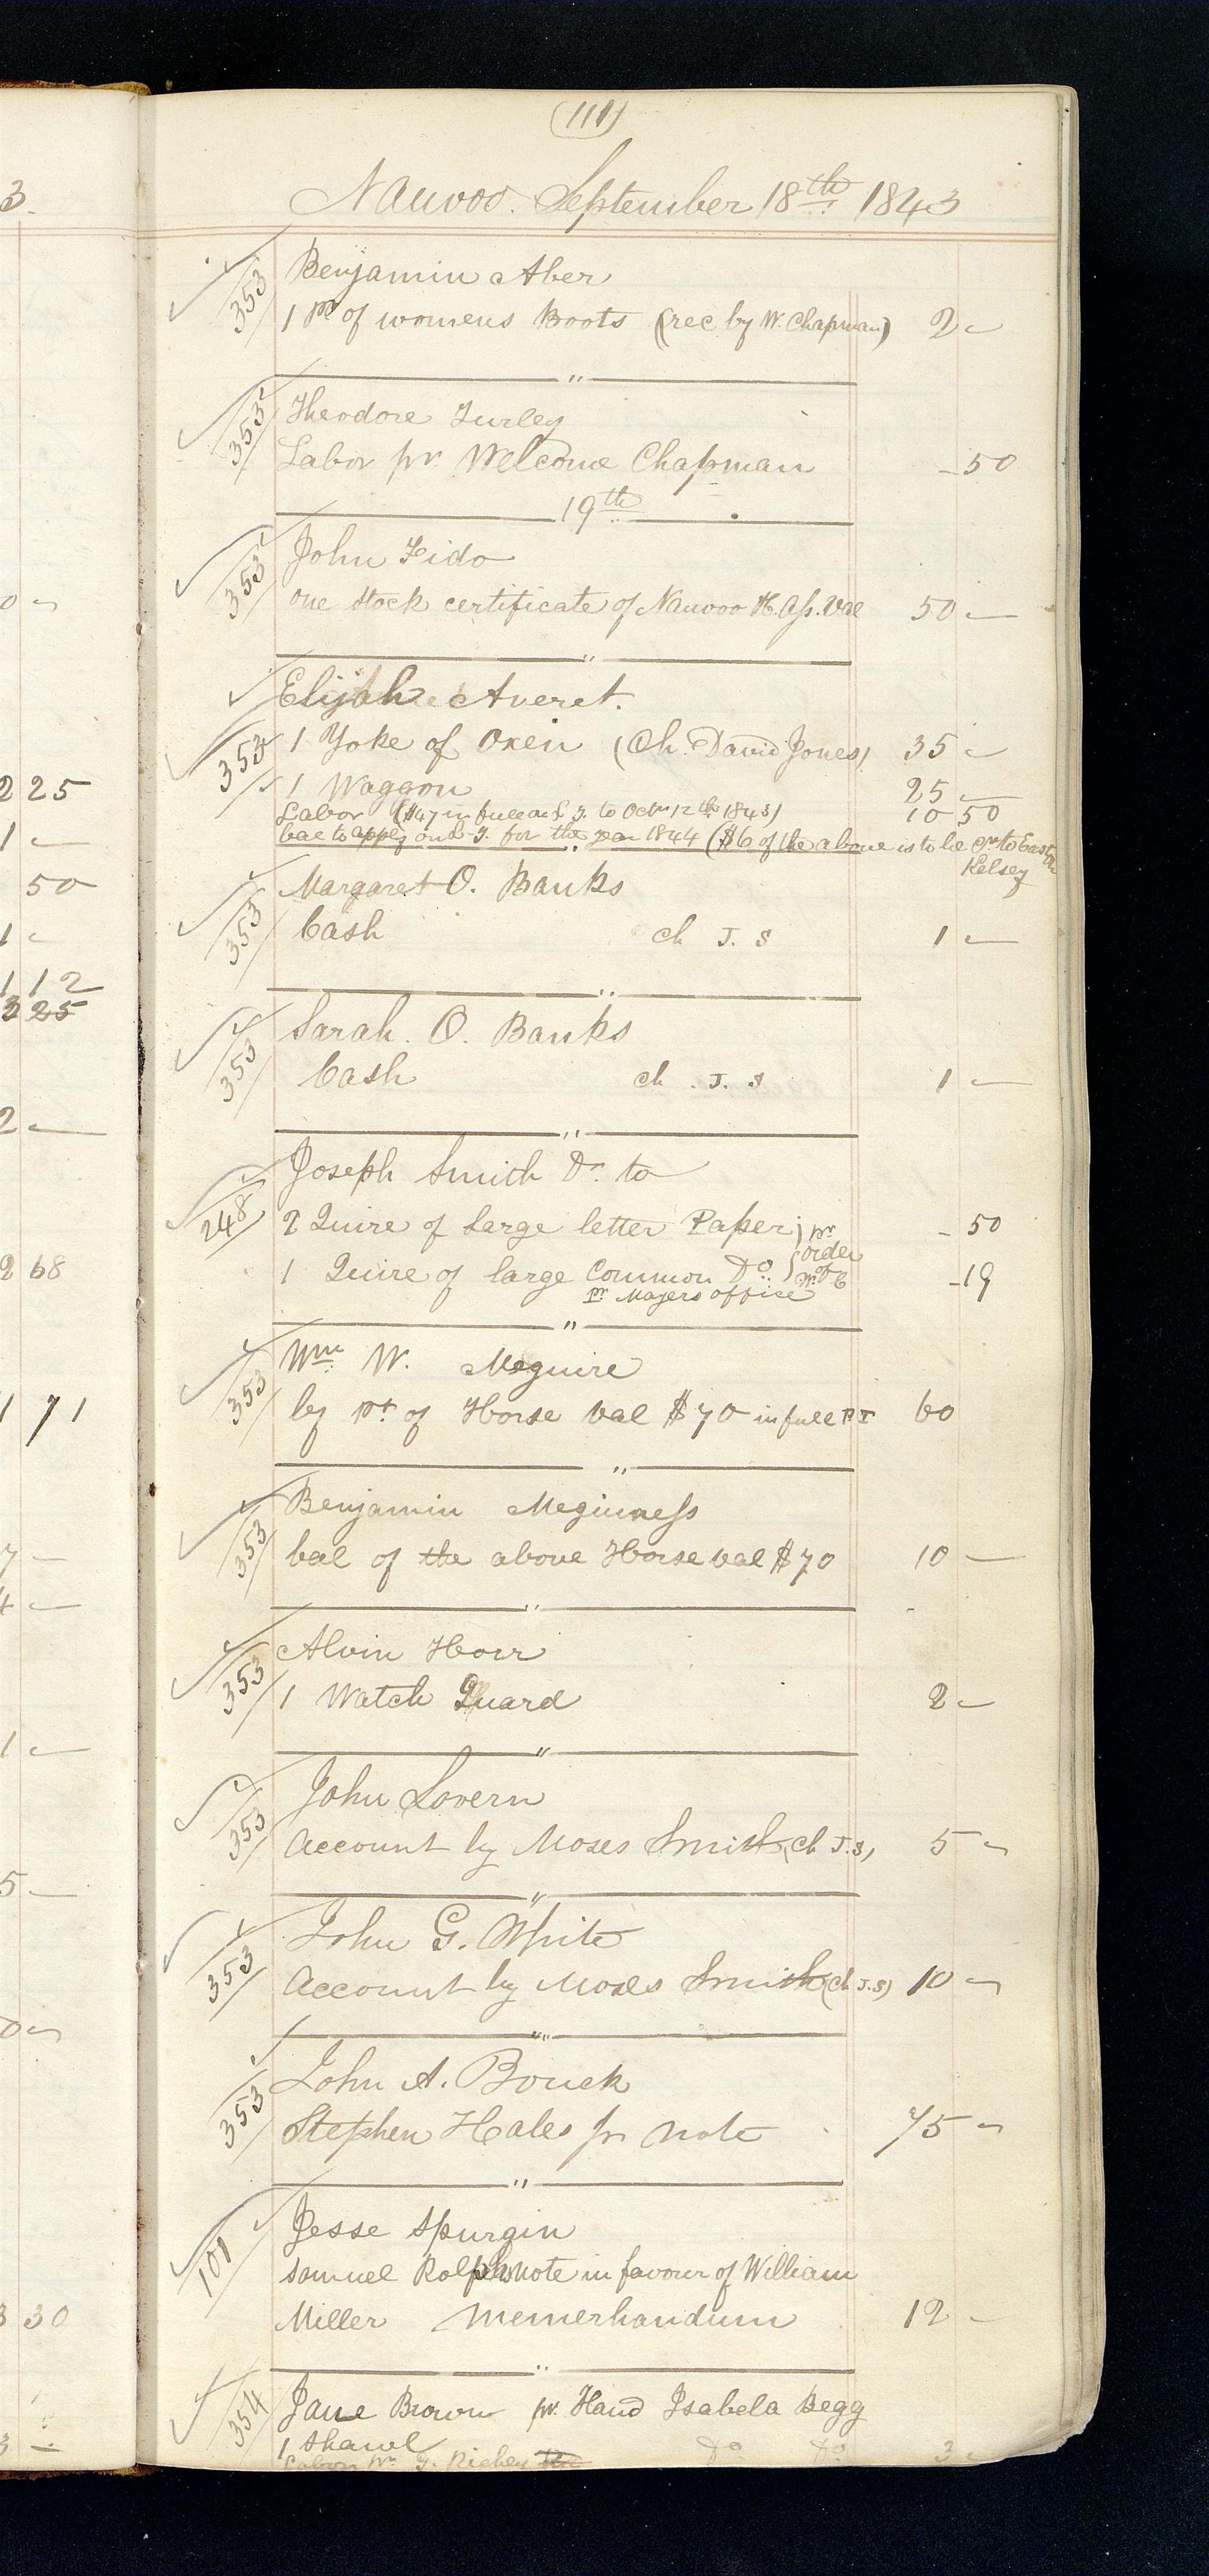 (111)
Nauvoo. September 18th 1843
353 Benjamin Aber
1 pr of womens Boots (rec by W. Chapman) 2 -
"
353 Theodore Turley
Labor pr. Welcome Chapman - 50
19th
353 John Fido
one stock certificate of Nauvoo H. Ass. val 50 -
"
Elijah Averet.
353 1 Yoke of Oxen (Ch. David Jones) 35 -
1 Waggon 25 -
Labor ($47 in full on T. to Octr 12th 1843) 10 50
bal to apply on T. for the year 1844 ($6 of the above is to be cr. to
Kelsey
353 Margaret O. Banks
Cash ch J. S 1 -
"
353 Sarah. O. Banks
Cash ch. J. S 1 -
"
248 Joseph Smith Dr. to
2 Quire of large letter Paper; pr - 50
order
1 Quire of large Common Do W. C - 19
pr Mayers office
"
353 Wm W. Meguire
by pt of Horse val $70 in full PT 60
"
353 Benjamin Meginness
bal of the above Horse val $70 10 -
"
353 Alvin Horr
1 Watch Guard 2 -
"
353 John Lovern
Account by Moses Smith (ch J.S) 5 -
"
353 John G. White
Account by Moses Smith (ch J.S) 10 -
"
353 John A. Bouck
Stephen Hales pr note 75 -
"
101 Jesse Spurgin
Samuel Rolphs note in favour of William
Miller memerhandum 12 -
"
354 Jane Brown pr. Hand Isabela Begg
1 Shawl Do Do 3 -
Labor pr. J. Richey
3.
0 -
2 25
1 -
50
1 -
1 12
3 25
2 -
2 68
1 71
7 -
4 -
1 -
5 -
0 -
3 30
3 -